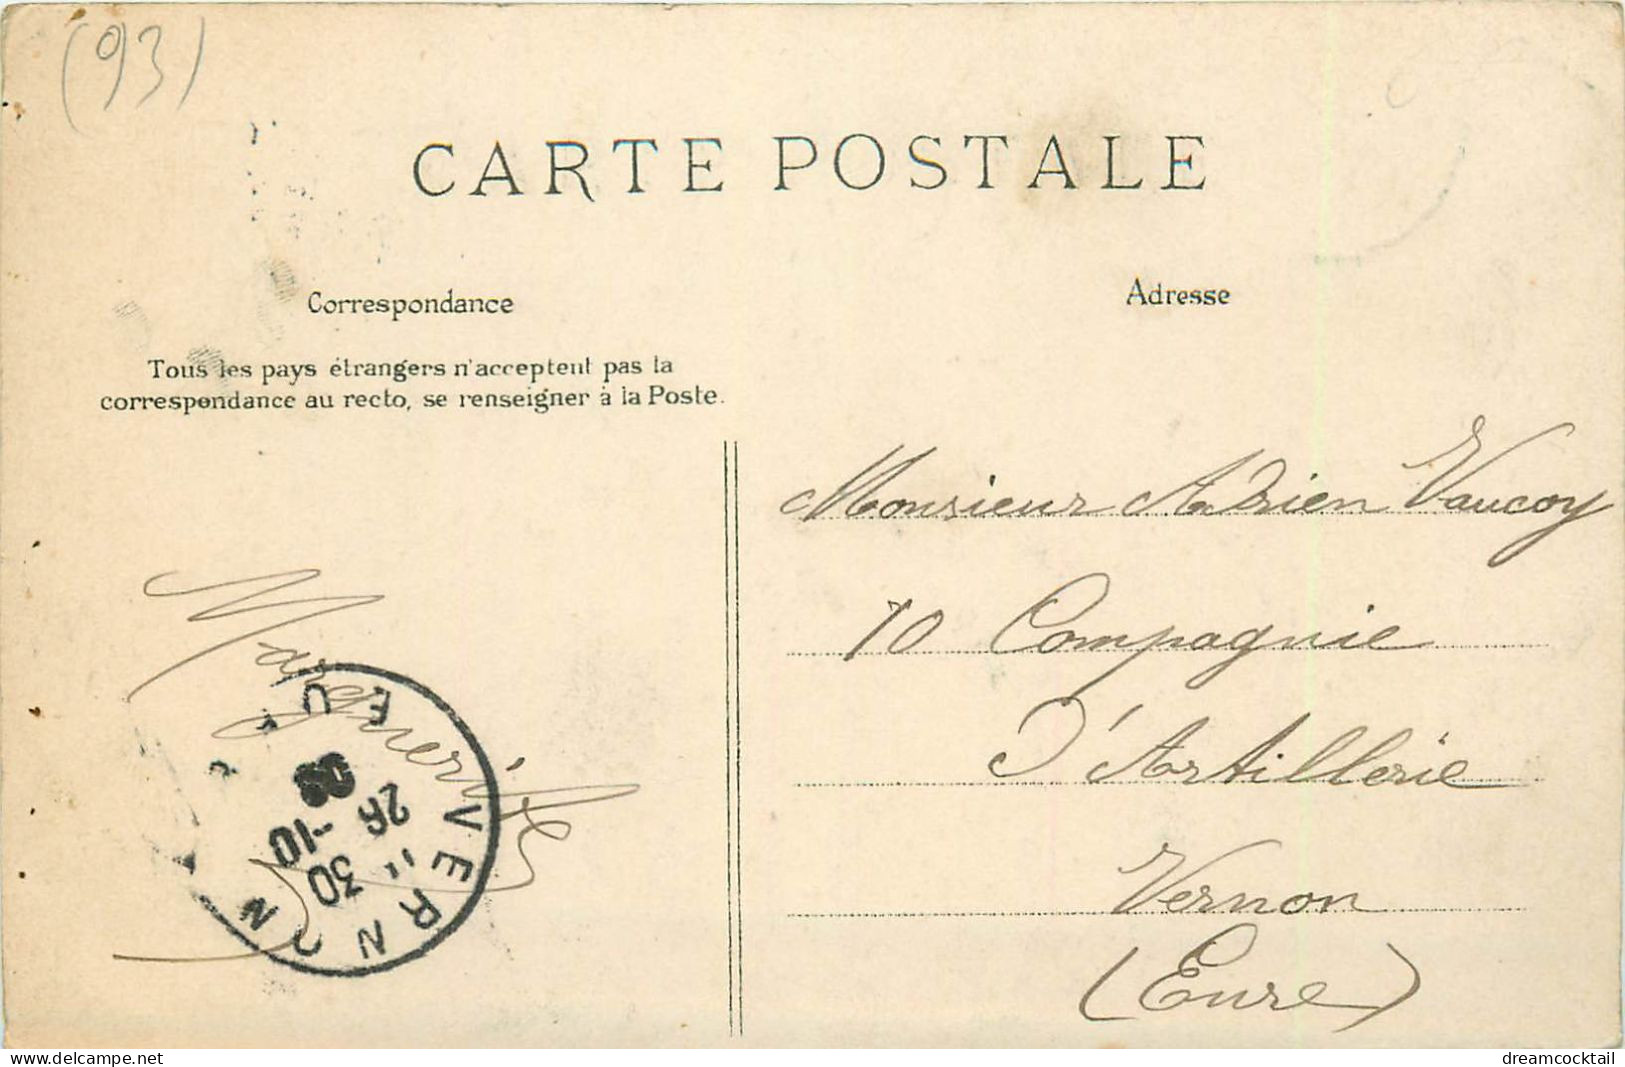 (93)
CARTE POSTALE
Correspondance
Adresse
Tous les pays étrangers n'acceptent pas la
correspondance au recto, se renseigner à la Poste.
Monsieur Adrien Vaucoy
10 Compagnie
D'Artillerie
Vernon
(Eure)
Marguerite
VERNON
EU
30
26 -10
08
www.delcampe.net
dreamcocktail